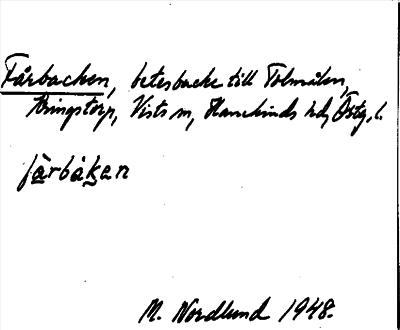 Fårbacken, betesbacke till Tolmålen,
Bringstorp, Vists sn, Hanekinds hd, Östg. l.
fàrbákan
M. Nordlund 1948.